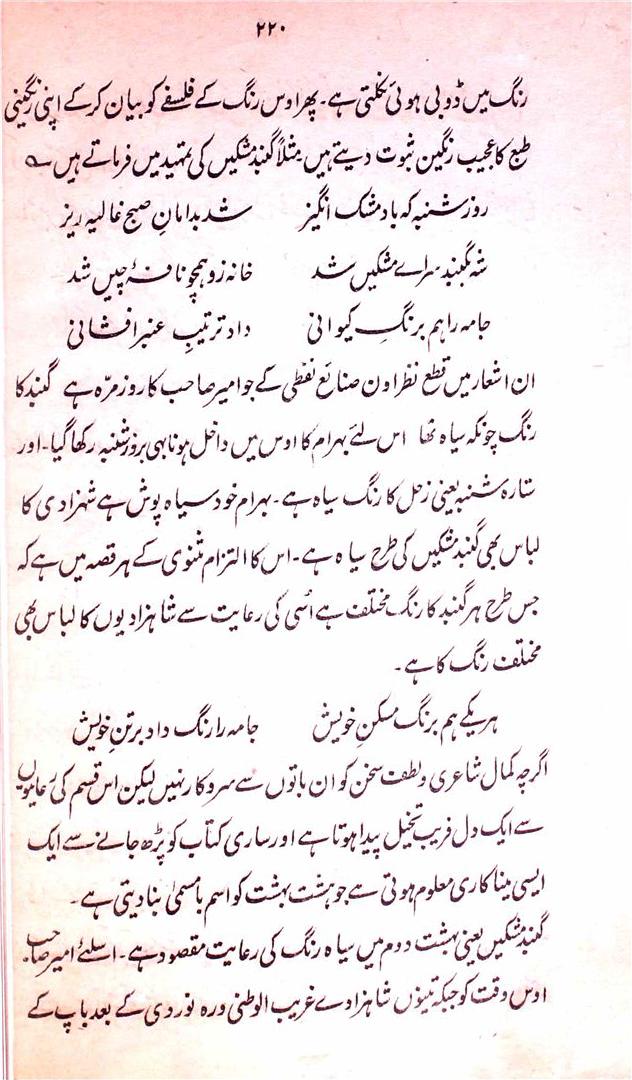 ۲۲۰
رنگ میں ڈوبی ہوئی نکلتی ہے۔ پھر اوس رنگ کے فلسفے کو بیان کرکے اپنی رنگینی
طبع کا عجیب رنگین ثبوت دیتے ہیں مثلاً گنبد مشکیں کی تمہید میں فرماتے ہیں ؎
روز شنبہ کہ باد مشک انگیز شد بدامانِ صبح غالیہ ریز
شہ بگنبد سراے مشکیں شد خانہ زو ہمچو نافۂ چیں شد
جامہ را ہم برنگِ کیوانی داد ترتیبِ عنبر افشانی
ان اشعار میں قطع نظر اون صنائع لفظی کے جو امیر صاحب کا روزمرّہ ہے گنبد کا
رنگ چونکہ سیاہ تھا اس لئے بہرام کا اوس میں داخل ہونا بھی بروز شنبہ رکھا گیا۔ اور
ستارہ شنبہ یعنی زحل کا رنگ سیاہ ہے۔ بہرام خود سیاہ پوش ہے شہزادی کا
لباس بھی گنبد مشکیں کی طرح سیاہ ہے۔ اس کا التزام مثنوی کے ہر قصہ میں ہے کہ
جس طرح ہر گنبد کا رنگ مختلف ہے اُسی کی رعایت سے شاہزادیوں کا لباس بھی
مختلف رنگ کا ہے۔
ہر یکے ہم برنگ مسکنِ خویش جامہ را رنگ داد بر تنِ خویش
اگرچہ کمال شاعری و لطف سخن کو ان باتوں سے سروکار نہیں لیکن اس قسم کی رعایتوں
سے ایک دل فریب تخیل پیدا ہوتا ہے اور ساری کتاب کو پڑھ جانے سے ایک
ایسی مینا کاری معلوم ہوتی ہے جو ہشت بہشت کو اسم بامسمّیٰ بنا دیتی ہے۔
گنبد مشکیں یعنی بہشت دوم میں سیاہ رنگ کی رعایت مقصود ہے۔ اسلئے امیر صاحب
اوس وقت کو جبکہ تینوں شاہزادے غریب الوطنی و رہ نوردی کے بعد باپ کے